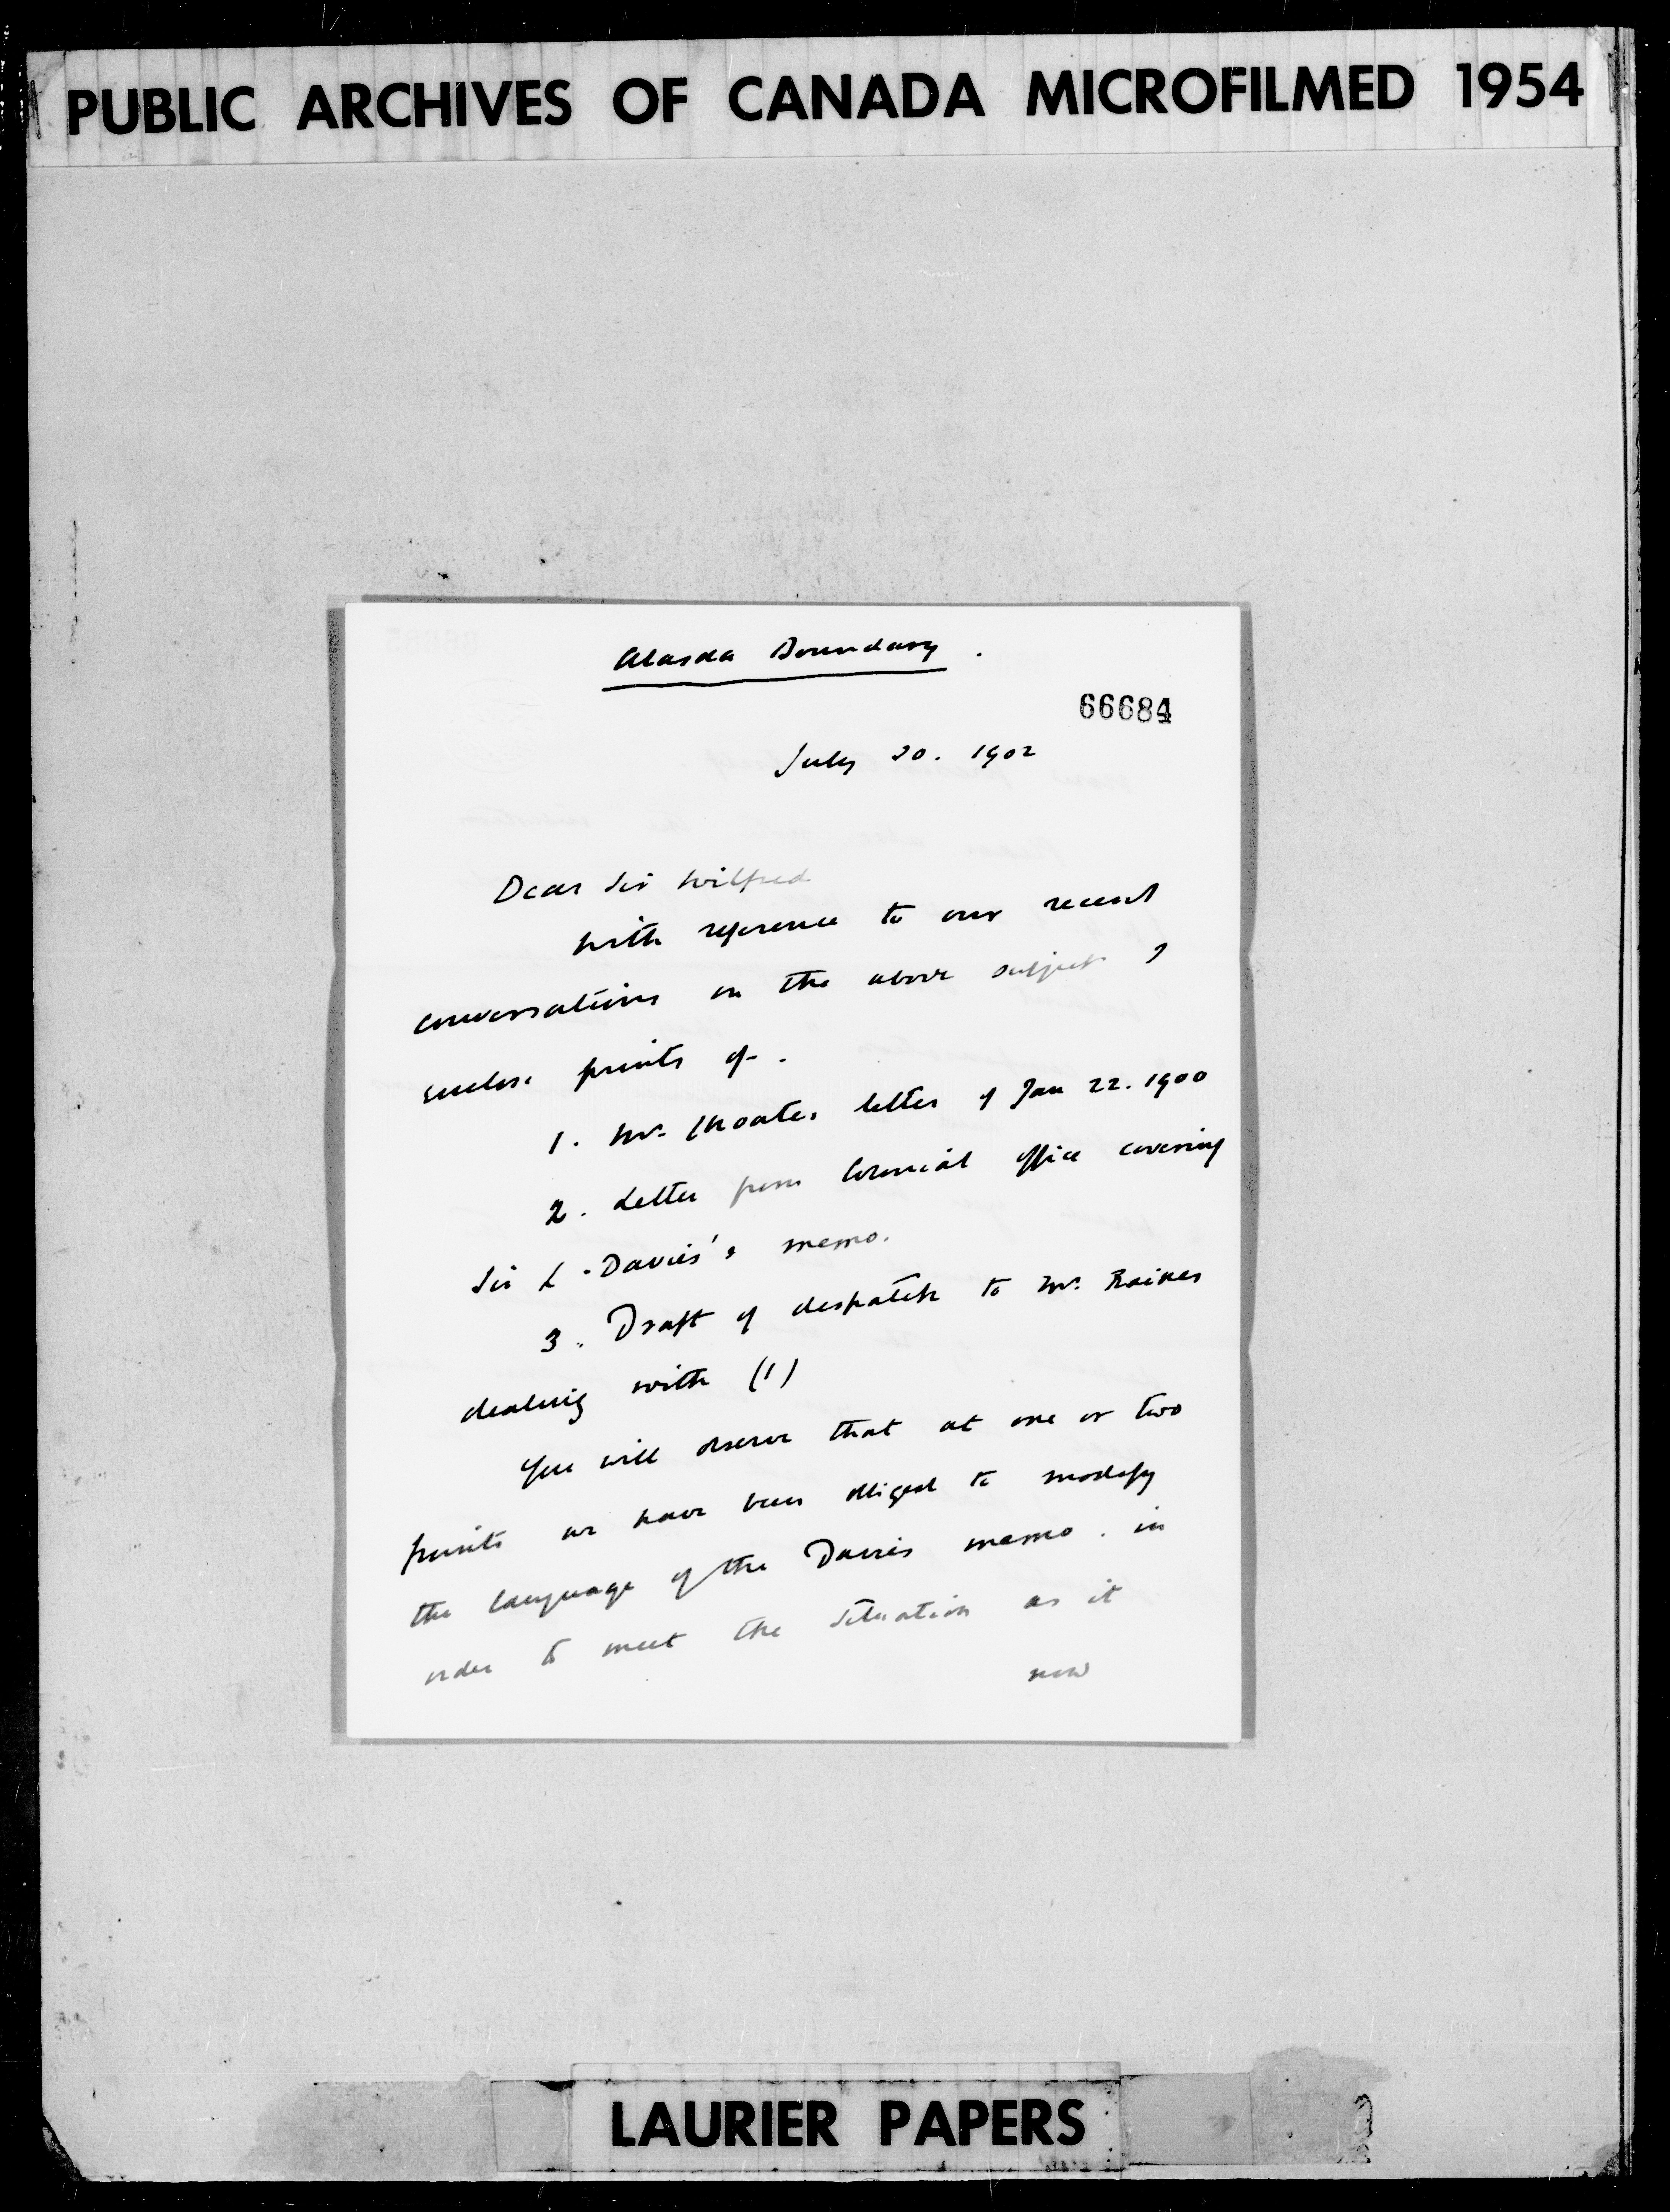 PUBLIC ARCHIVES OF CANADA MICROFILMED 1954
Alaska Boundary.
66684
July 20. 1902
Dear Sir Wilfred
With reference to our recent
conversations on the above subject I
enclose prints of.
1. Mr. Choate's letter of Jan 22. 1900
2. Letter from Colonial Office covering
Sir L. Davies's memo.
3. Draft of despatch to Mr. Raikes
dealing with (1)
You will observe that at one or two
points we have been obliged to modify
the language of the Davies memo. in
order to meet the situation as it
now
LAURIER PAPERS